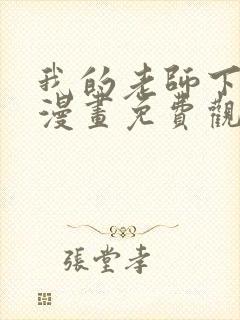 我的老師下
漫畫免費觀
張堂孝